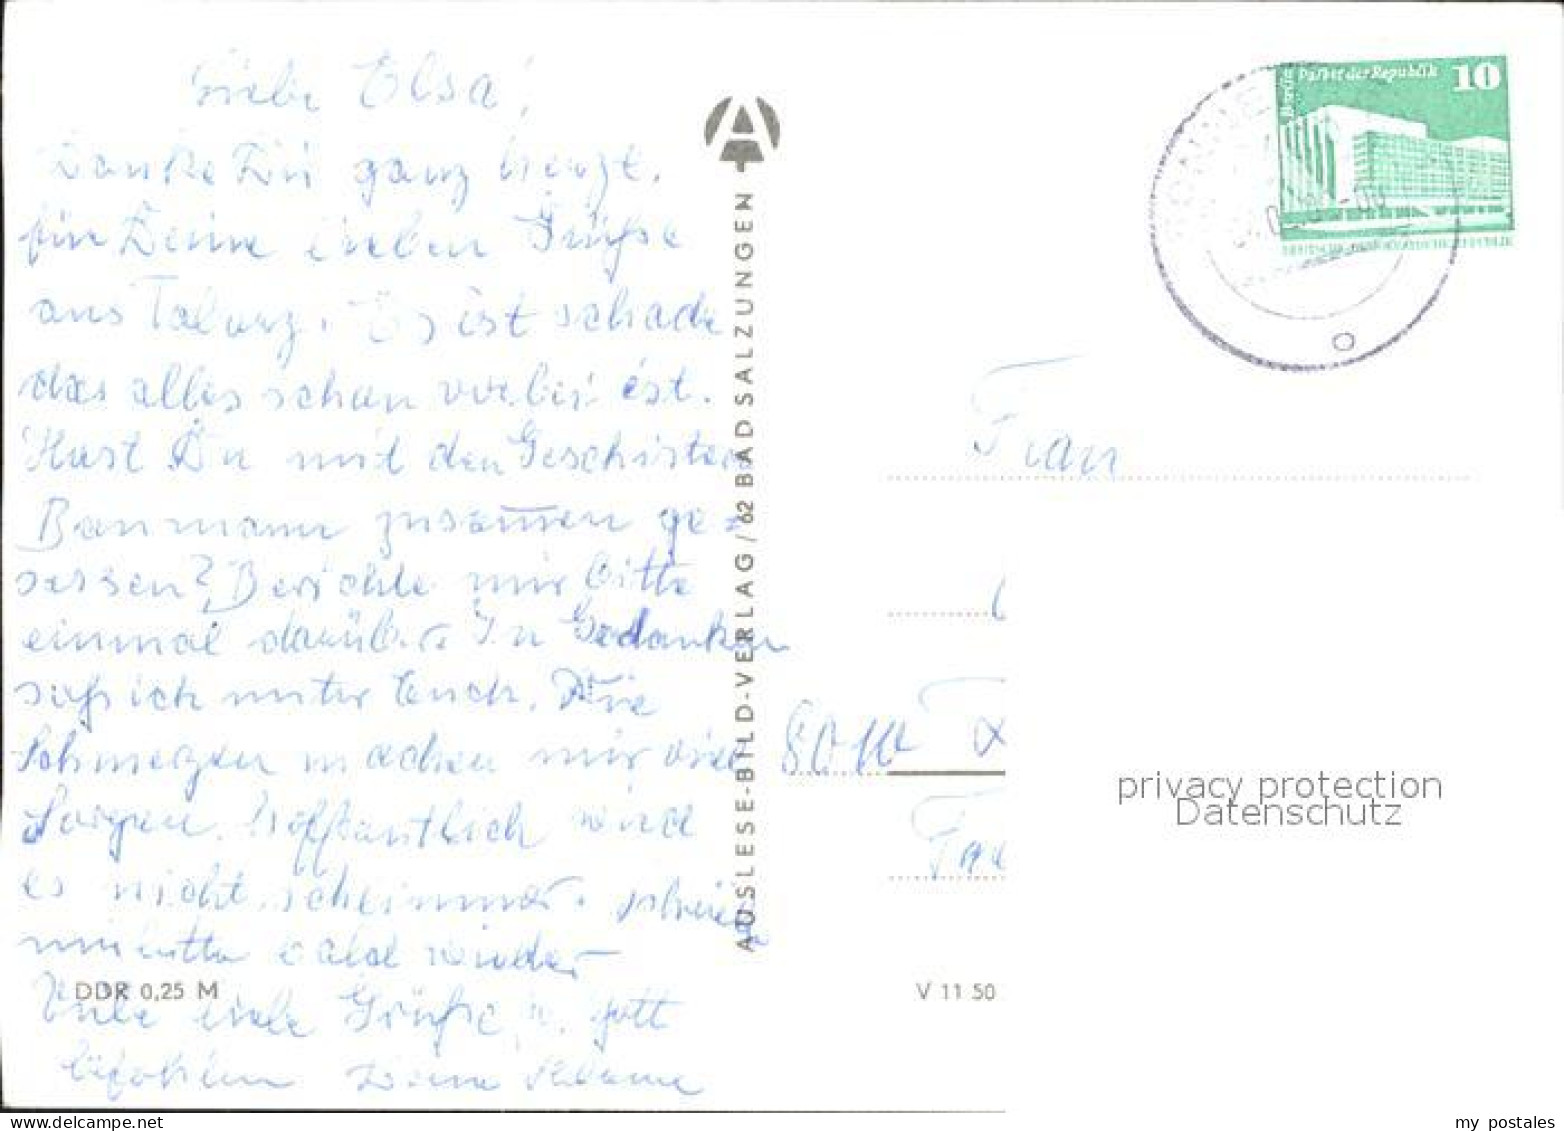 Liebe Elsa!
Danke Dir ganz herzl.
für Deine lieben Grüße
aus Tabarz. Es ist schade
das alles schon vorbei ist.
Hast Du mit den Geschwistern
Baumann zusammen ge=
sessen? Berichte mir bitte
einmal darüber. In Gedanken
saß ich unter Euch. Die
Schmerzen machen mir viel
Sorgen. Hoffentlich wird
es nicht schlimmer. schreib
mir bitte bald wieder
Viele liebe Grüße u. Gott
befohlen Deine
DDR 0,25 M
AUSLESE-BILD-VERLAG / 62 BAD SALZUNGEN
V 11 50
Berlin
Palast der Republik 10
DEUTSCHE DEMOKRATISCHE REPUBLIK
Frau
8010
privacy protection
Datenschutz
www.delcampe.net
my_postales